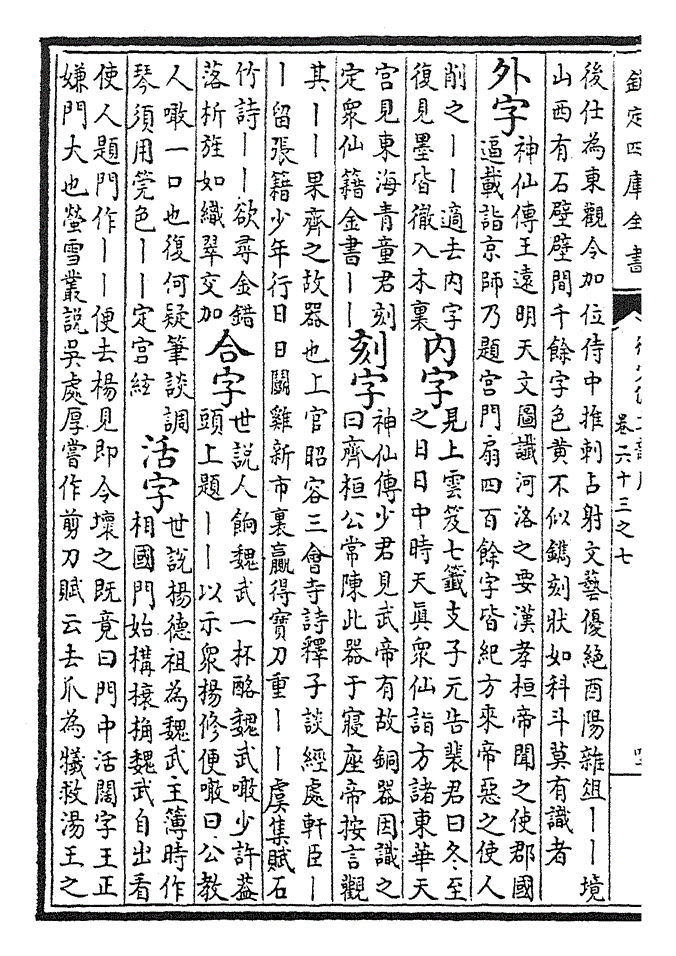 欽定四庫全書
卷六十三之七
後仕為東觀令加位侍中推刺占射文藝優絕酉陽雜俎｜｜境
山西有石壁壁間千餘字色黄不似鐫刻狀如科斗莫有識者
外字
神仙傳王遠明天文圖讖河洛之要漢孝桓帝聞之使郡國
逼載詣京師乃題宫門扇四百餘字皆紀方來帝惡之使人
削之｜｜適去内字
復見墨皆徹入木裏
内字
見上雲笈七籤支子元告裴君曰冬至
之日日中時天真衆仙詣方諸東華天
宫見東海青童君刻
定衆仙籍金書｜｜
刻字
神仙傳少君見武帝有故銅器因識之
曰齊桓公常陳此器于寢座帝按言觀
其｜｜果齊之故器也上官昭容三會寺詩釋子談經處軒臣｜
｜留張籍少年行日日鬬雞新市裏贏得寶刀重｜｜虞集賦石
竹詩｜｜欲尋金錯
落析旌如織翠交加
合字
世說人餉魏武一杯酪魏武噉少許葢
頭上題｜｜以示衆楊修便噉曰公教
人噉一口也復何疑筆談調
琴須用筦色｜｜定宫絃
活字
世說楊德祖為魏武主簿時作
相國門始構榱桷魏武自出看
使人題門作｜｜便去楊見即令壞之既竟曰門中活闊字王正
嫌門大也螢雪叢說吳處厚嘗作剪刀賦云去爪為犧救湯王之